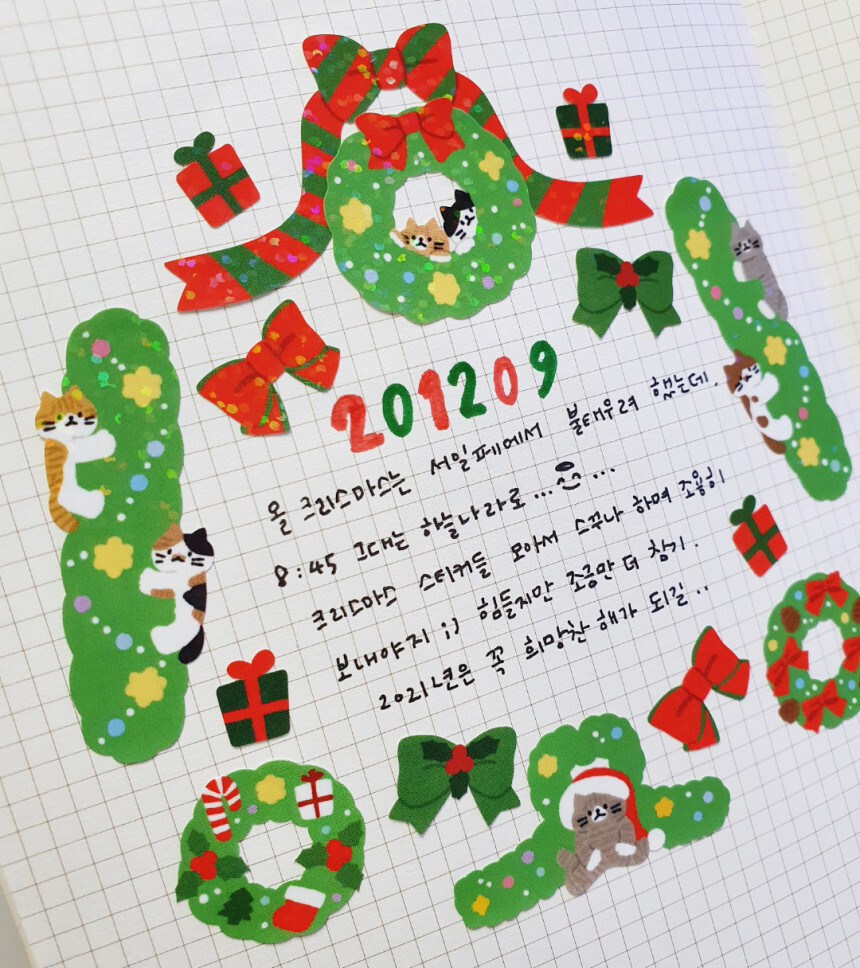 201209
올 크리스마스는 서일페에서 불태우려 했는데.
8:45 그대는 하늘나라로... ...
크리스마스 스티커들 모아서 스꾸나 하며 조용히
보내야지 ;) 힘들지만 조금만 더 참기.
2021년은 꼭 희망찬 해가 되길..